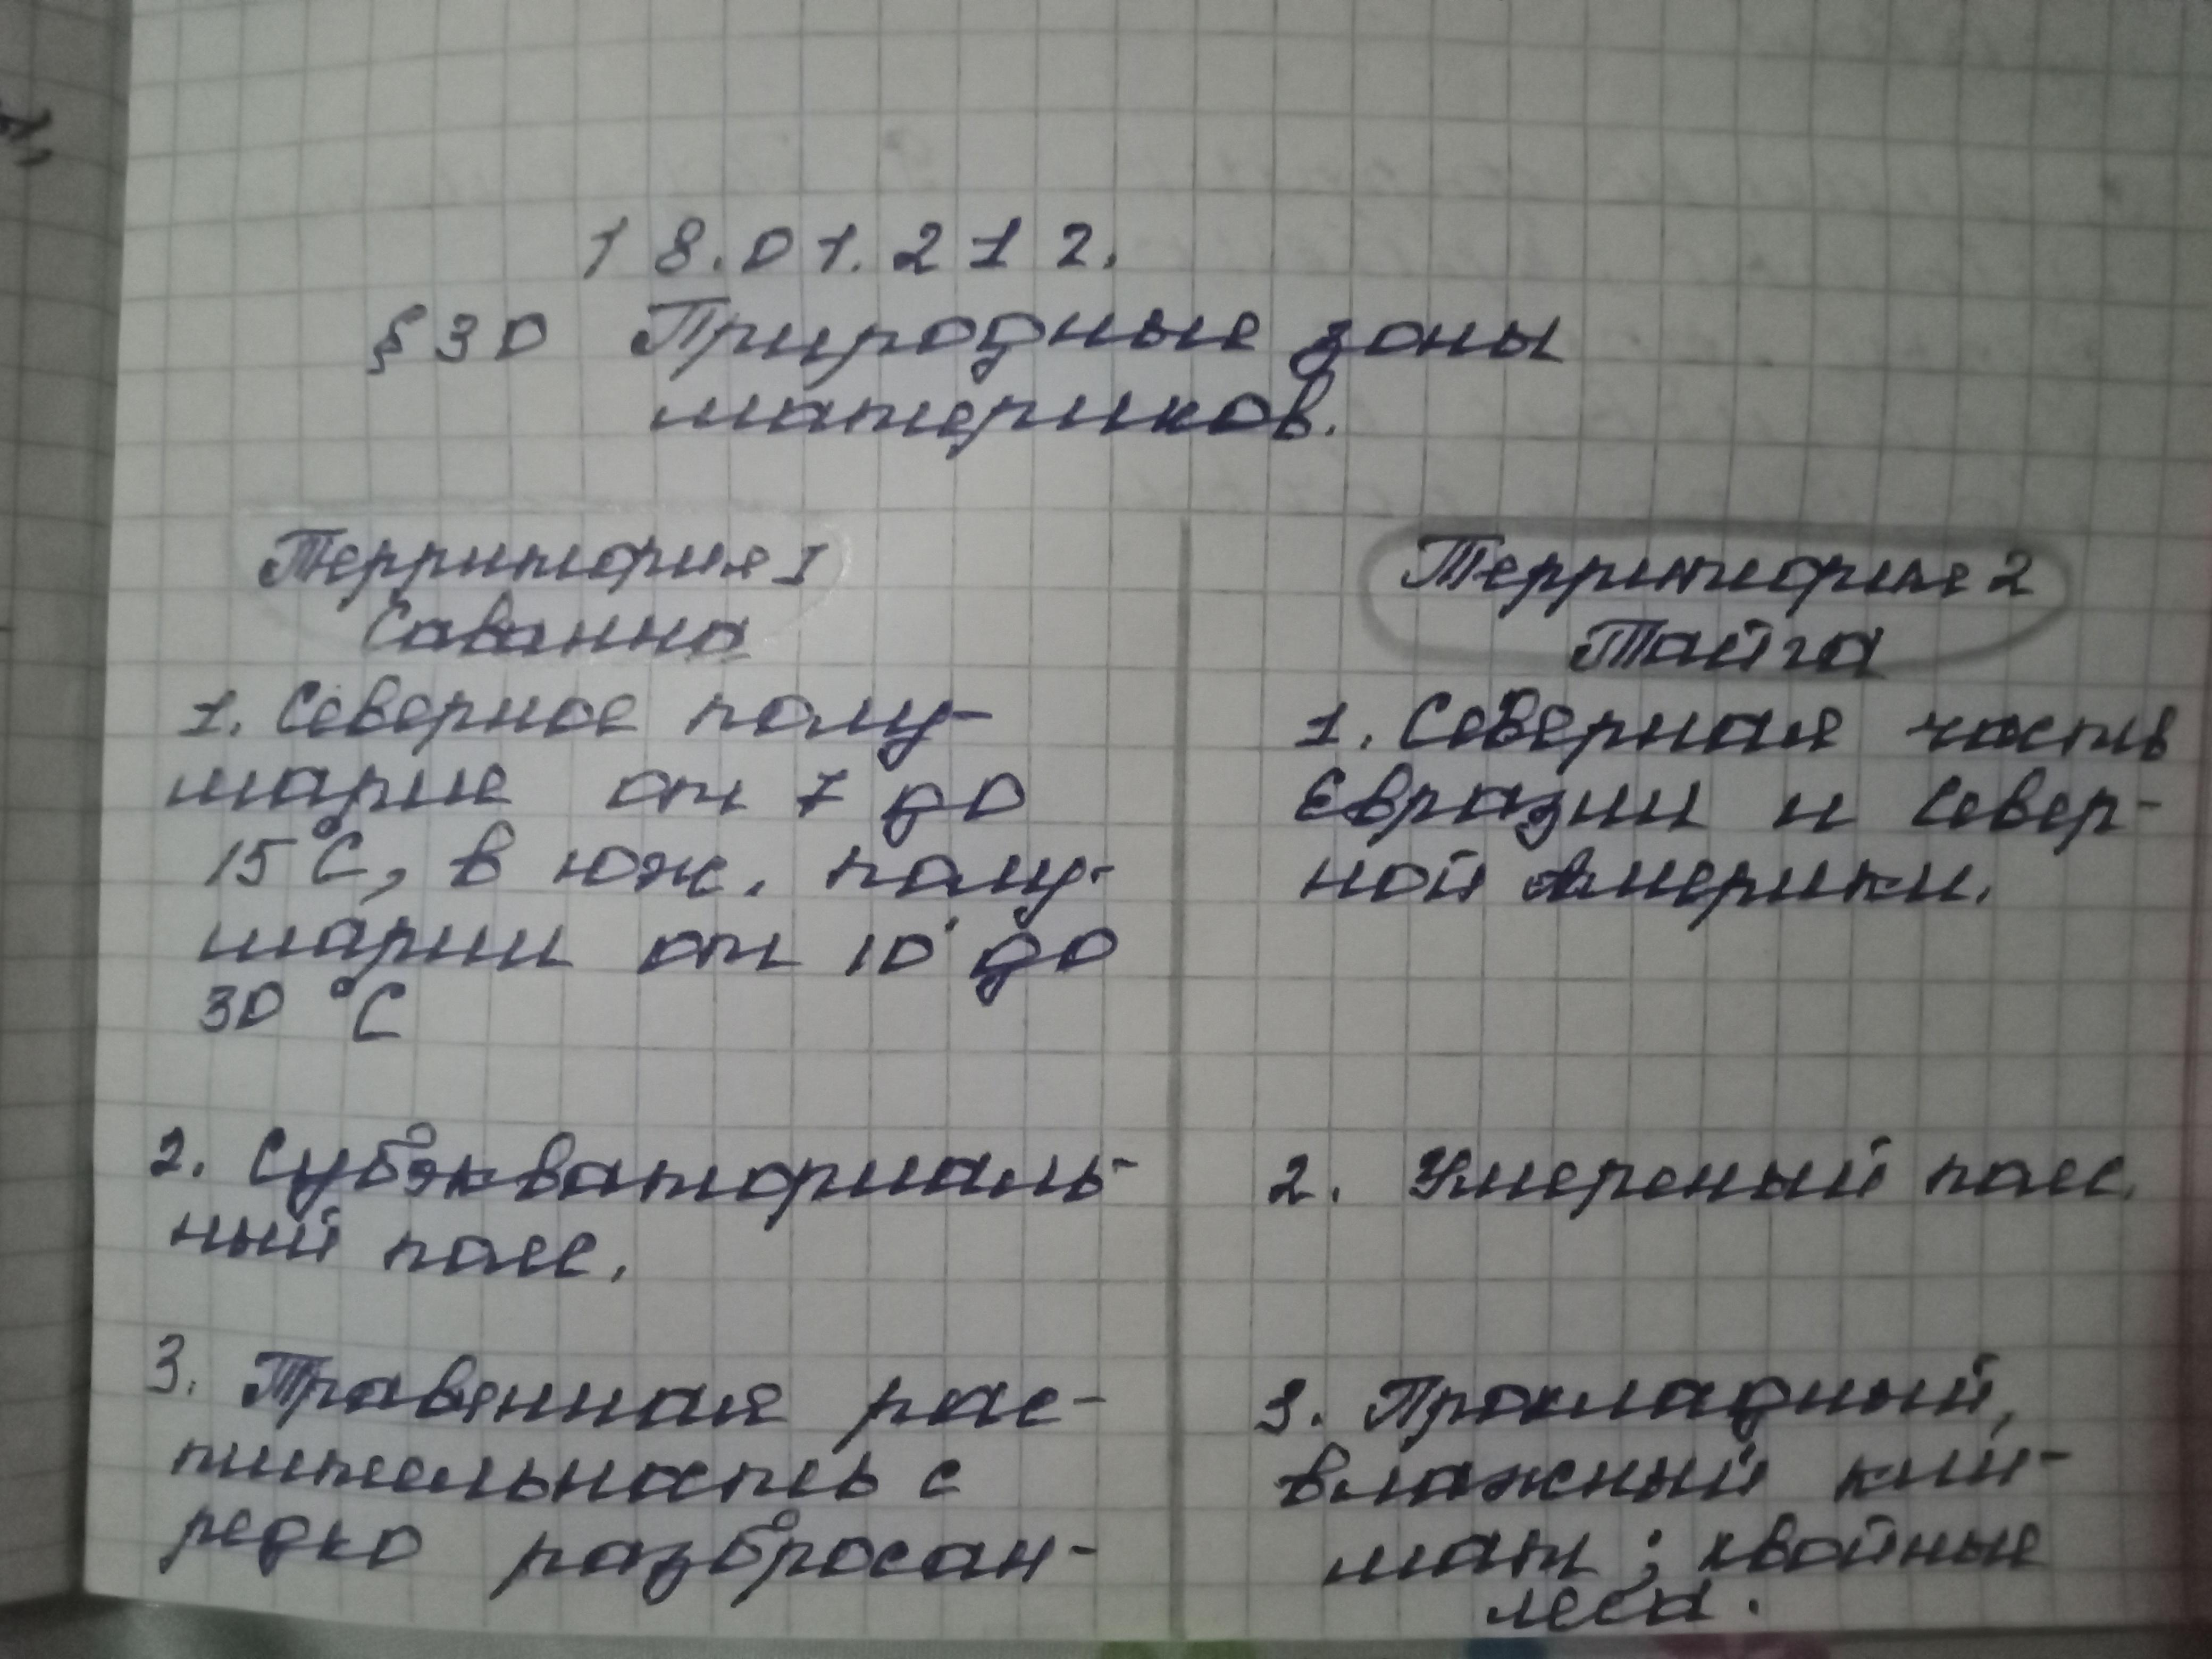 18.01.21г.
§30 Природные зоны
материков.
Территория 1
Саванна
1. Северное полу-
шарие от 7 до
15°С, в юж. полу-
шарии от 10 до
30 °С
2. Субэкваториаль-
ный пояс.
3. Травянная рас-
тительность с
редко разбросан-
Территория 2
Тайга
1. Северная часть
Евразии и Север-
ной Америки.
2. Умереный пояс.
3. Прохладный,
влажный кли-
мат; хвойные
леса.